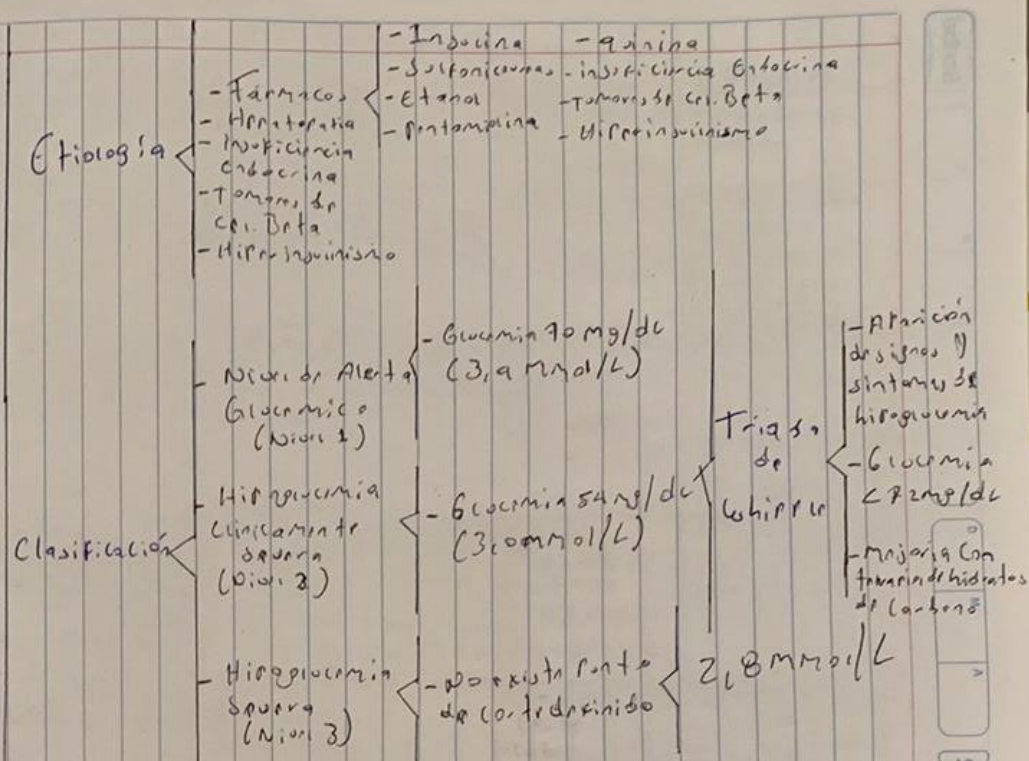 Etiología
- Fármacos
- Hepatopatia
- Insuficiencia
endocrina
- Tomores de
cel. Beta
- Hiperinsulinismo
- Insulina
- Sulfonilureas
- Etanol
- Pentamidina
- quinina
- insuficiencia Endocrina
- Tomores de cel. Beta
- Hiperinsulinismo
Clasificación
- Nivel de Alerta
Glucemico
(Nivel 1)
- Glucemia 70 mg/dL
(3,9 mmol/L)
- Hipoglucemia
Clinicamente
severa
(Nivel 2)
- Glucemia 54 mg/dL
(3,0 mmol/L)
- Hipoglucemia
Severa
(Nivel 3)
- No existe Punto
de corte definido
2,8 mmol/L
Triada
de
Whipple
- Aparición
de signos y
sintomas de
hipoglucemia
- Glucemia
<72mg/dL
- mejoria Con
de hidratos
de Carbono